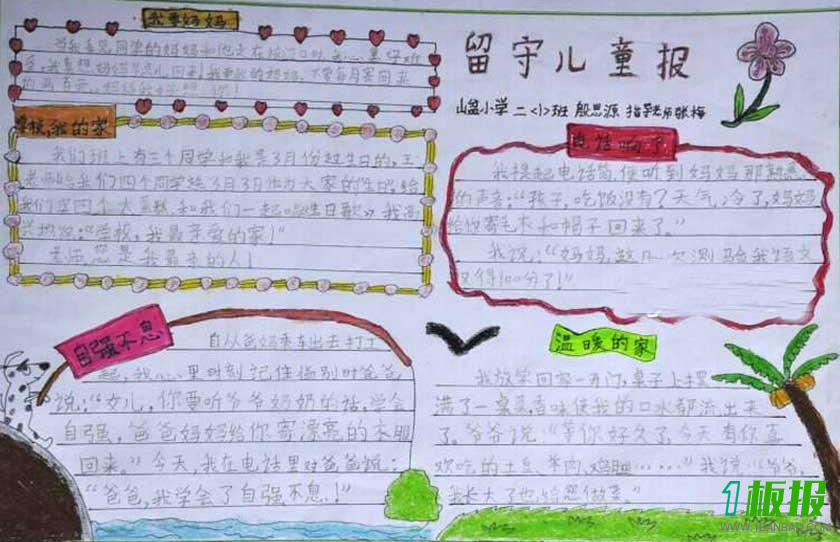 我要妈妈
当我看见同学的妈妈和他走在校门口时,我心里好难
受,我真想妈妈早点儿回来!我要我的妈妈,不要每月寄回来
的两百元。妈妈我好想你!
留守儿童报
山盆小学 二<1>班 殷思源 指导老师张梅
学校,我的家
我们班上有三个同学和我是3月份过生日的,王
老师给我们四个同学在3月3日作为大家的生日给
我们买四个大蛋糕,和我们一起唱《生日歌》我高
兴地说:“学校,我最亲爱的家!”
老师,您是我最亲的人!
电话响了
我提起电话筒,便听到妈妈那熟悉
的声音:“孩子,吃饭没有?天气冷了,妈妈
给你寄毛衣和帽子回来了。”
我说:“妈妈,这几次测验我语文
又得100分了!”
自强不息
自从爸妈乘车出去打工
起,我心里时刻记住临别时爸爸
说:“女儿,你要听爷爷奶奶的话,学会
自强,爸爸妈妈给你寄漂亮的衣服
回来。”今天,我在电话里对爸爸说:
“爸爸,我学会了自强不息!”
温暖的家
我放学回家一开门,桌子上摆
满了一桌菜,香味使我的口水都流出来
了。爷爷说:“等你好久了,今天有你喜
欢吃的土豆、羊肉、鸡腿……”我说:“爷爷,
我长大了也给您做菜。”
1板报
WWW.1BANBAO.COM